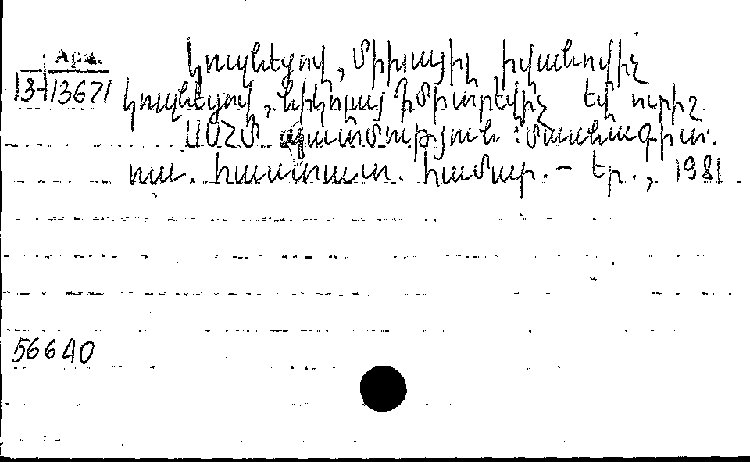 Արև.
13-|13671
Կուզնեցով, Միխայիլ Իվանովիչ
Կուզնեցով, Նիկոլայ Դմիտրեվիչ եվ ուրիշ
ՍՍՀՄ պատմություն: Մասնագիտ.
ուս. հաստատ. համար. – Եր., 1981
56640